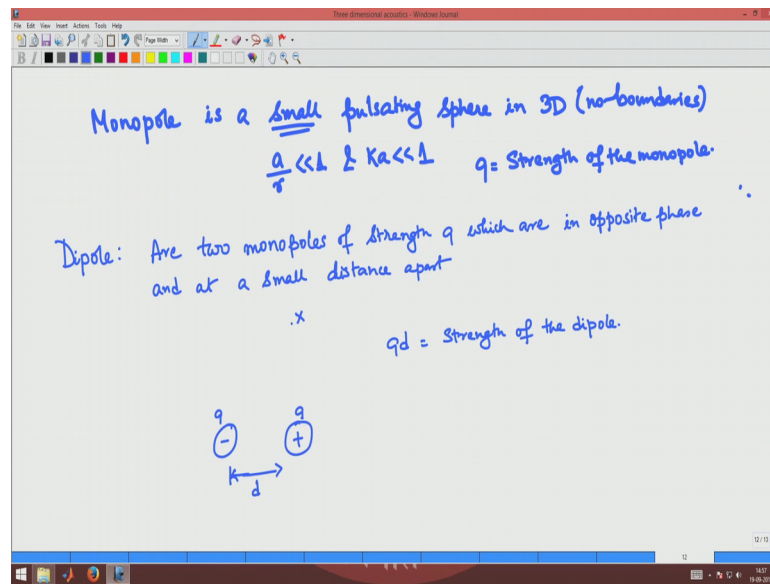 Three dimensional acoustics - Windows Journal
File Edit View Insert Actions Tools Help
Page Width
B I
Monopole is a small pulsating sphere in 3D (no-boundaries)
a/r <<1 & Ka<<1 q= Strength of the monopole.
Dipole: Are two monopoles of strength q which are in opposite phase
and at a small distance apart
.x
qd = Strength of the dipole.
q q
- +
d
12 / 13
12
14:57